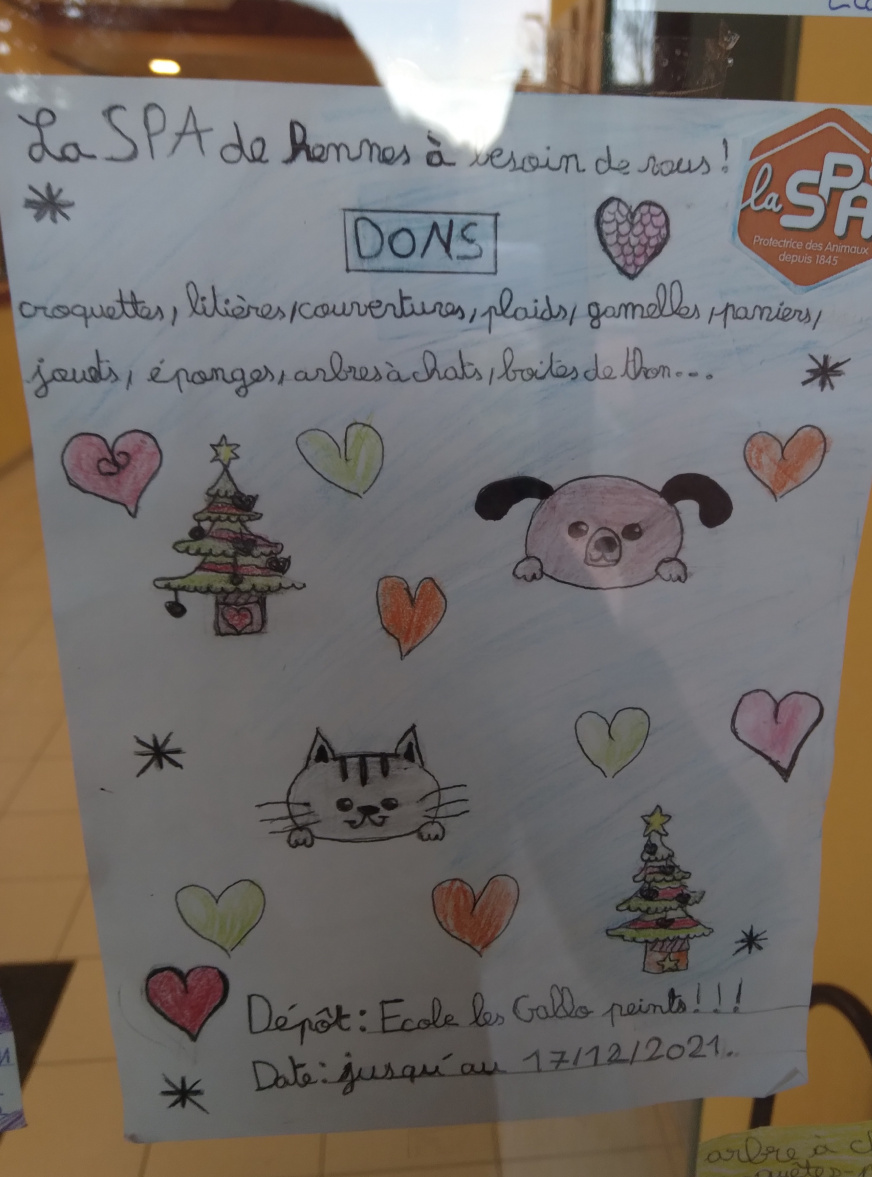 La SPA de Rennes à besoin de vous !
la SPA
Protectrice des Animaux
depuis 1845
DONS
croquettes, litières, couvertures, plaids, gamelles, paniers,
jouets, éponges, arbres à chats, boites de thon...
Dépôt : Ecole les Gallo peints !!!
Date : jusqu'au 17/12/2021..
arbre à